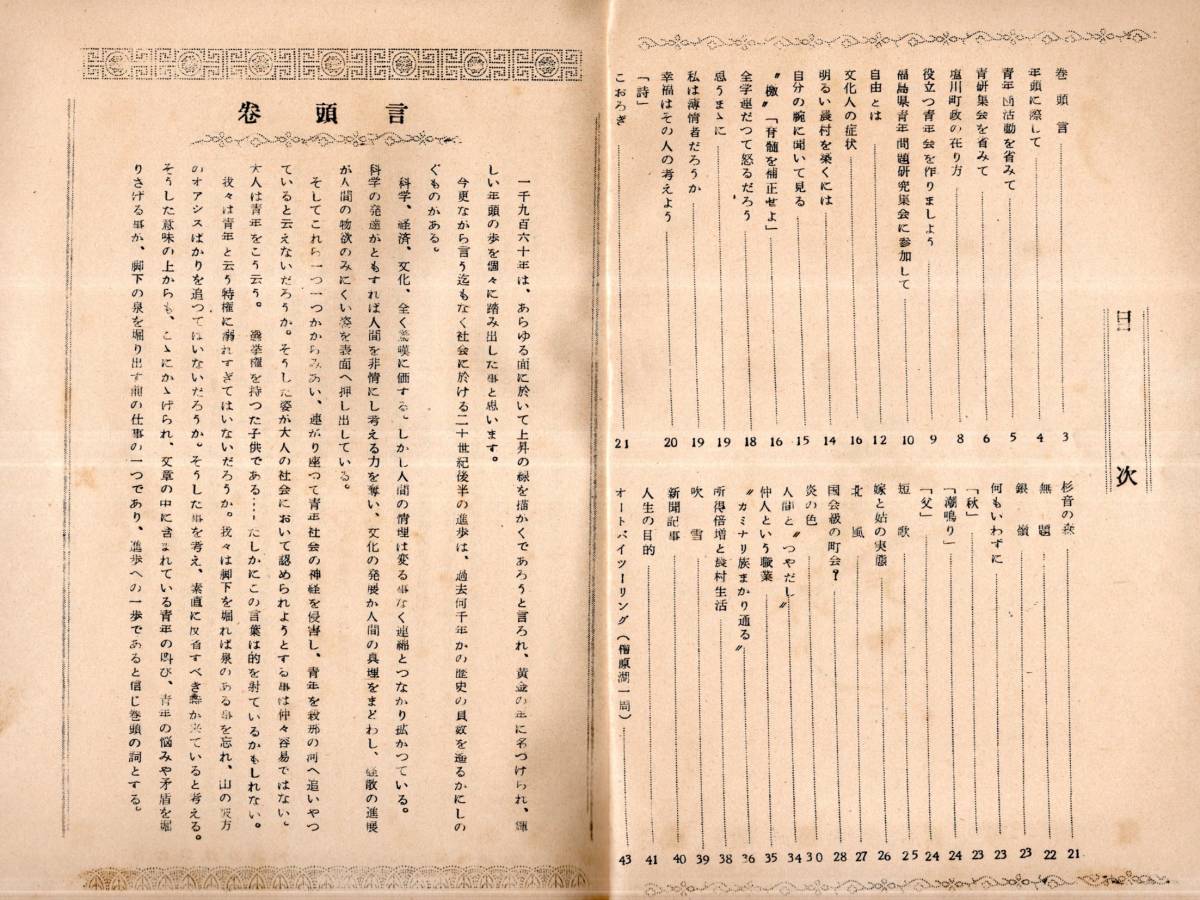 目次
巻頭言 3
年頭に際して 4
青年団活動を省みて 5
青研集会を省みて 6
塩川町政の在り方 8
役立つ青年会を作りましよう 9
福島県青年問題研究集会に参加して 10
自由とは 12
文化人の症状 16
明るい農村を築くには 14
自分の腕に聞いて見る 15
〝檄〟「脊髄を補正せよ」 16
全学連だつて怒るだろう 18
思うまゝに 19
私は薄情者だろうか 19
幸福はその人の考えよう 20
「詩」
こおろぎ 21
杉音の森 21
無題 22
銀嶺 23
何もいわずに 23
「秋」 23
「潮鳴り」 24
「父」 24
短歌 25
嫁と姑の実態 26
北風 27
国会級の町会? 28
炎の色 30
人間と〝つやだし〟 34
仲人という職業 35
〝カミナリ族まかり通る〟 36
所得倍増と農村生活 38
吹雪 39
新聞記事 40
人生の目的 41
オートバイツーリング(檜原湖一周) 43
巻頭言
一千九百六十年は、あらゆる面に於いて上昇の線を描かくであろうと言ろれ、黄金の年に名つけられ、輝
しい年頭の歩を個々に踏み出した事と思います。
今更ながら言う迄もなく社会に於ける二十世紀後半の進歩は、過去何千年かの歴史の頁数を遥るかにしの
ぐものがある。
科学、経済、文化、全く驚嘆に価する。しかし人間の情理は変る事なく連綿とつなかり拡かつている。
科学の発達がともすれば人間を非情にし考える力を奪い、文化の発展か人間の真理をまどわし、経散の進展
が人間の物欲のみにくい姿を表面へ押し出している。
そしてこれら一つ一つかからみあい、連がり座つて青年社会の神経を侵害し、青年を殺那の河へ追いやつ
ていると云えないだろうか。そうした姿が大人の社会において認められようとする事は仲々容易ではない。
大人は青年をこう云う。 選挙権を持つた子供である…。たしかにこの言葉は的を射ているかもしれない。
我々は青年と云う特権に溺れすぎてはいないだろうか。我々は脚下を堀れば泉のある事を忘れ、山の彼方
のオアシスばかりを追つてはいないだろうか。そうした事を考え、素直に反省すべき時か来ていると考える。
そうした意味の上からも、こゝにかゝげられ、文章の中に含まれている青年の叫び、青年の悩みや矛盾を堀
りさげる事か、脚下の泉を堀り出す前の仕事の一つであり、進歩への一歩であると信じ巻頭の詞とする。